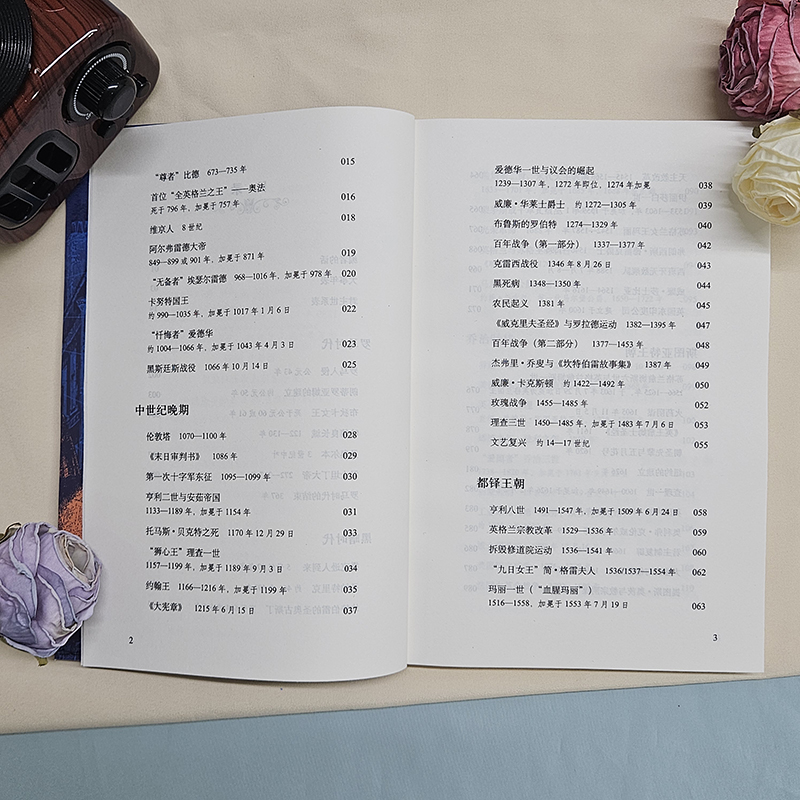 “尊者”比德 673—735 年 015
首位“全英格兰之王”——奥法
死于 796 年，加冕于 757 年 016
维京人 8 世纪 018
阿尔弗雷德大帝
849—899 或 901 年，加冕于 871 年 019
“无备者”埃瑟尔雷德 968—1016 年，加冕于 978 年 020
卡努特国王
约 990—1035 年，加冕于 1017 年 1 月 6 日 022
“忏悔者”爱德华
约 1004—1066 年，加冕于 1043 年 4 月 3 日 023
黑斯廷斯战役 1066 年 10 月 14 日 025
中世纪晚期
伦敦塔 1070—1100 年 028
《末日审判书》 1086 年 029
第一次十字军东征 1095—1099 年 030
亨利二世与安茹帝国
1133—1189 年，加冕于 1154 年 031
托马斯·贝克特之死 1170 年 12 月 29 日 033
“狮心王”理查一世
1157—1199 年，加冕于 1189 年 9 月 3 日 034
约翰王 1166—1216 年，加冕于 1199 年 035
《大宪章》 1215 年 6 月 15 日 037
2
爱德华一世与议会的崛起
1239—1307 年，1272 年即位，1274 年加冕 038
威廉·华莱士爵士 约 1272—1305 年 039
布鲁斯的罗伯特 1274—1329 年 040
百年战争（第一部分） 1337—1377 年 042
克雷西战役 1346 年 8 月 26 日 043
黑死病 1348—1350 年 044
农民起义 1381 年 045
《威克里夫圣经》与罗拉德运动 1382—1395 年 047
百年战争（第二部分） 1377—1453 年 048
杰弗里·乔叟与《坎特伯雷故事集》 1387 年 049
威廉·卡克斯顿 约 1422—1492 年 050
玫瑰战争 1455—1485 年 052
理查三世 1450—1485 年，加冕于 1483 年 7 月 6 日 053
文艺复兴 约 14—17 世纪 055
都铎王朝
亨利八世 1491—1547 年，加冕于 1509 年 6 月 24 日 058
英格兰宗教改革 1529—1536 年 059
拆毁修道院运动 1536—1541 年 060
“九日女王”简·格雷夫人 1536/1537—1554 年 062
玛丽一世（“血腥玛丽”）
1516—1558，加冕于 1553 年 7 月 19 日 063
3